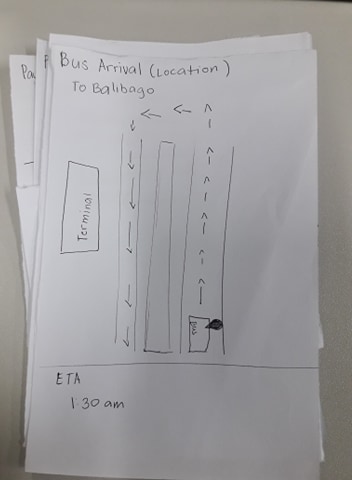 Bus Arrival (Location)
To Balibago
Terminal
Bus
ETA
1:30 am